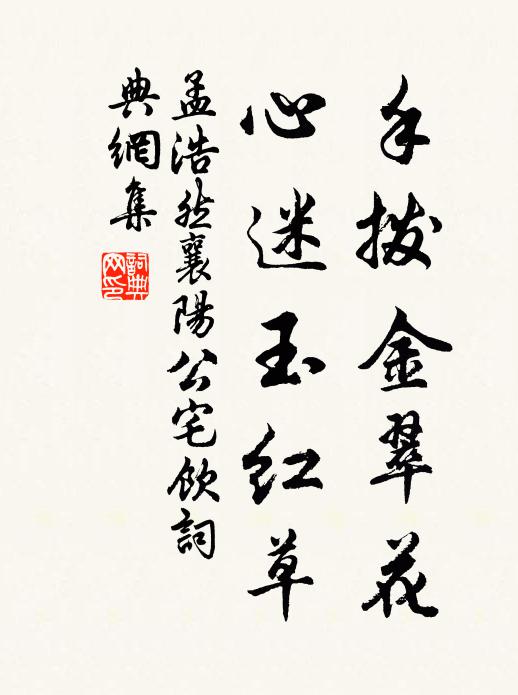 手拨金翠花
心迷玉红草
孟浩然襄陽公宅飲詞
典網集
詞典网印